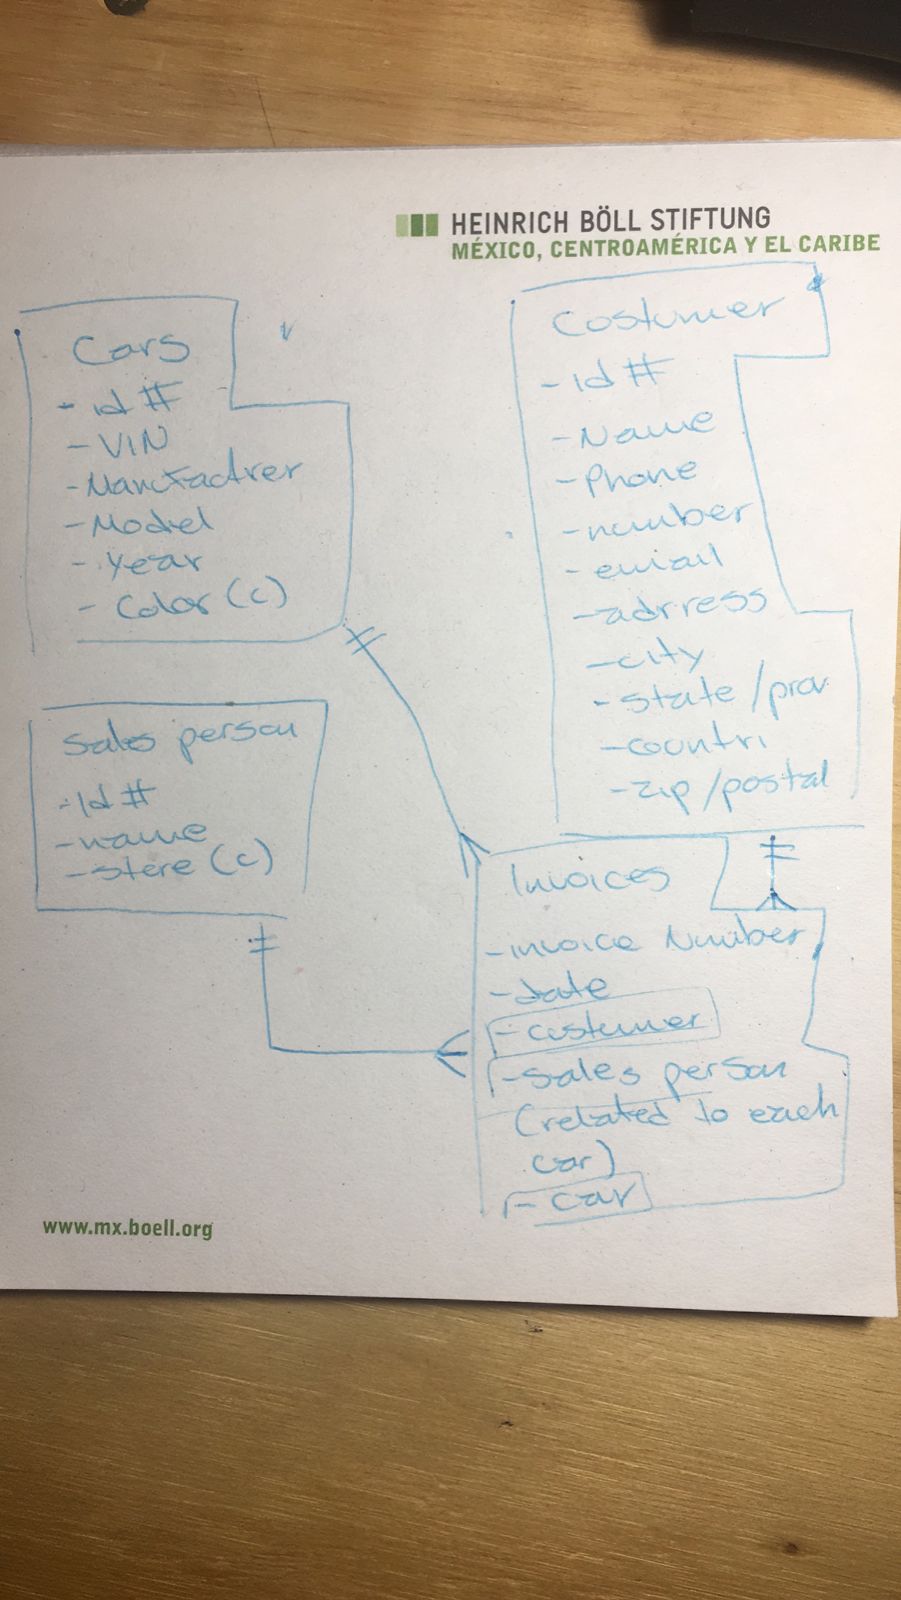 HEINRICH BÖLL STIFTUNG
MÉXICO, CENTROAMÉRICA Y EL CARIBE
Cars
- id #
- VIN
- Manufactrer
- Model
- year
- Color (c)
Costumer
- id #
- Name
- Phone
- number
- email
- adrress
- city
- state / prov
- countri
- zip / postal
Sales person
- Id #
- name
- store (c)
Invoices
- invoice Number
- date
- costumer
- sales person
(related to each
car)
- car
www.mx.boell.org